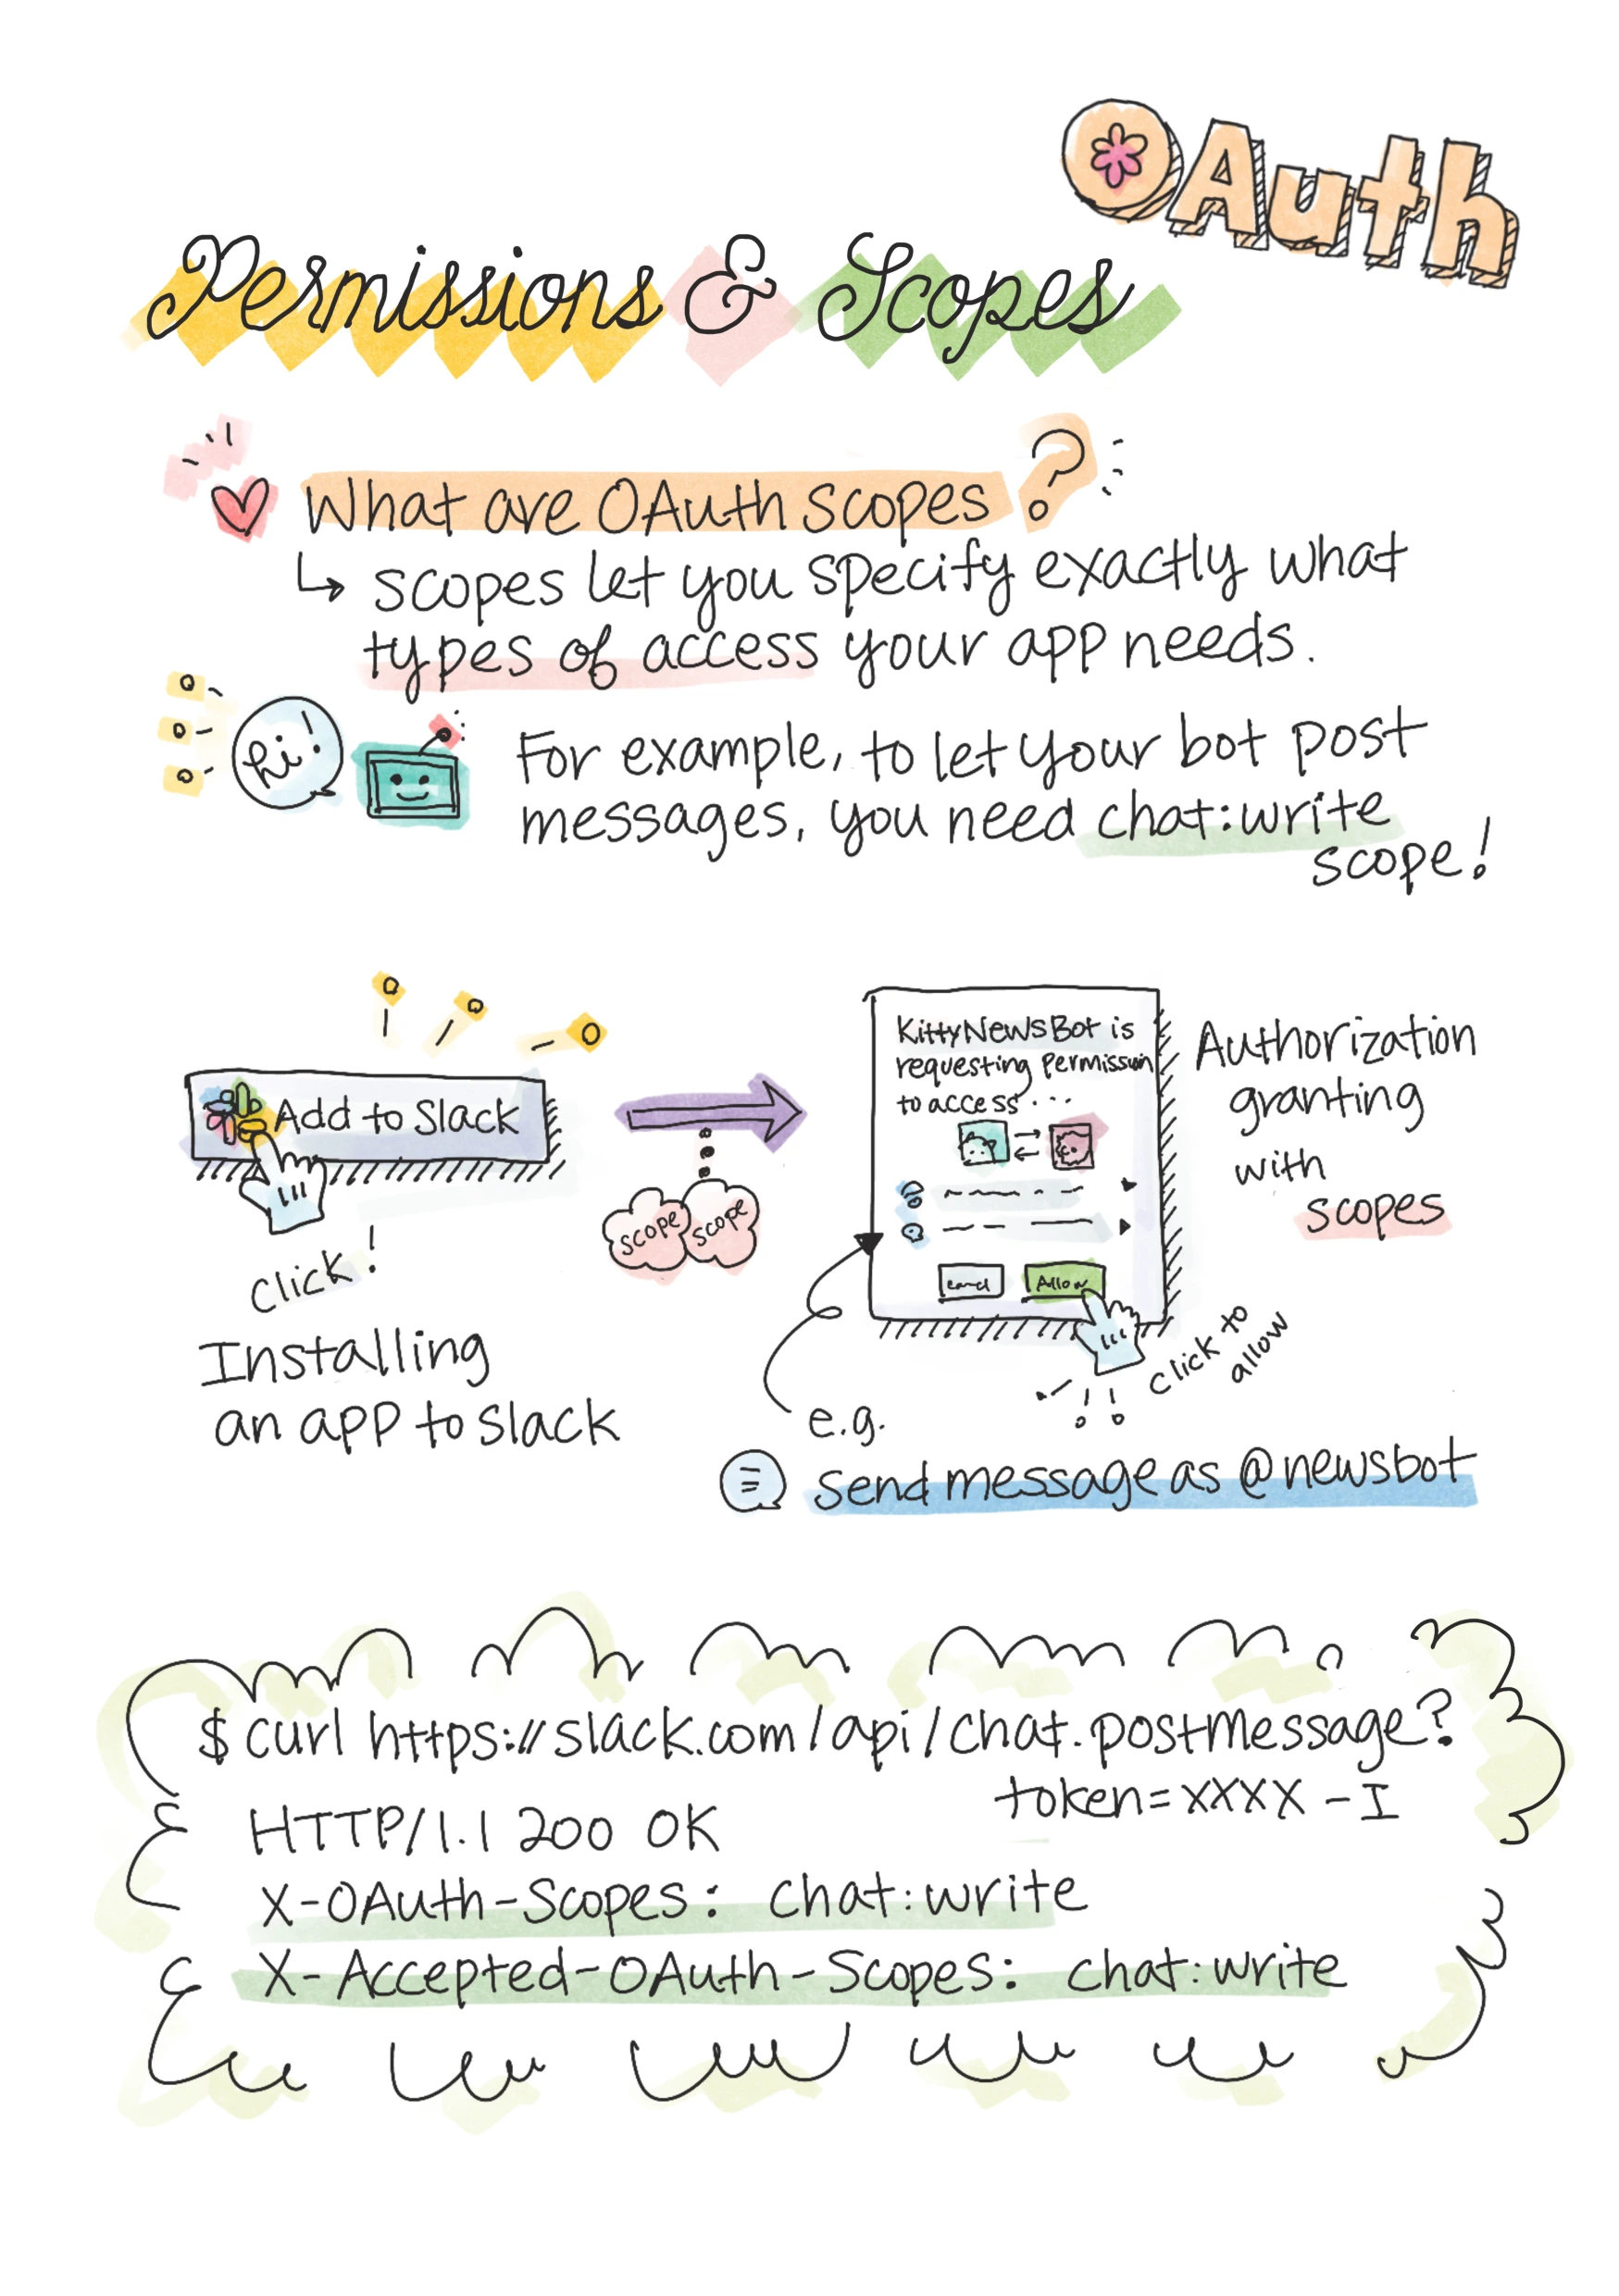 OAuth
Permissions & Scopes
What are OAuth scopes?
↳ scopes let you specify exactly what
types of access your app needs.
hi!
For example, to let your bot post
messages, you need chat:write
scope!
Add to Slack
click!
Installing
an app to Slack
scope scope
KittyNewsBot is
requesting permission
to access...
Allow
Authorization
granting
with
scopes
click to
allow
e.g.
send message as @newsbot
$ curl https://slack.com/api/chat.postmessage?
token=XXXX-I
HTTP/1.1 200 OK
X-OAuth-Scopes: chat:write
X-Accepted-OAuth-Scopes: chat:write